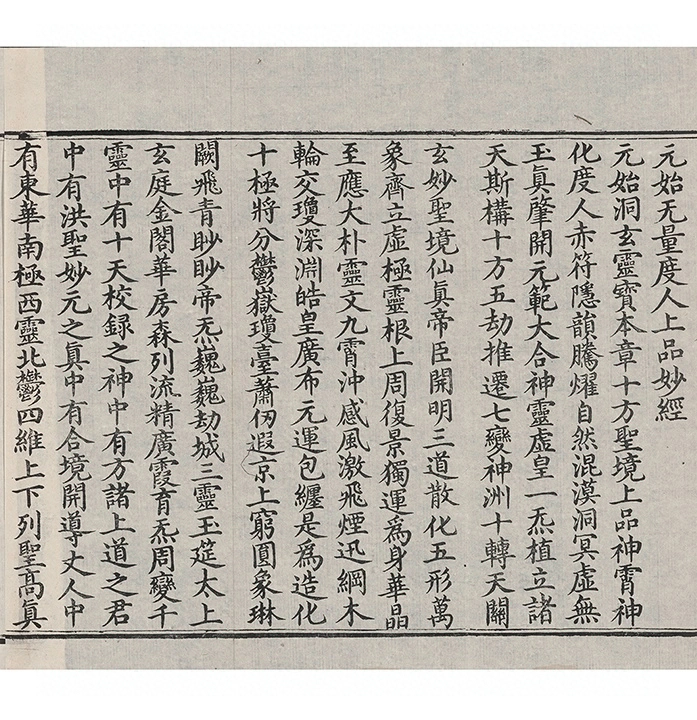 元始无量度人上品妙經
元始洞玄靈寶本章十方聖境上品神霄神
化度人赤符隱韻騰燿自然混漠洞冥虛無
玉眞肇開元範大合神靈虛皇一炁植立諸
天斯構十方五劫推遷七變神洲十轉天關
玄妙聖境仙眞帝臣開明三道散化五形萬
象齊立虛極靈根上周復景獨運爲身華晶
至應大朴靈文九霄沖感風激飛煙迅綱木
輪交瓊深淵皓皇廣布元運包纏是爲造化
十極將分鬱嶽瓊臺蕭仞遐京上窮圓象琳
闕飛青眇眇帝炁巍巍劫城三靈玉筵太上
玄庭金閣華房森列流精廣霞育炁周變千
靈中有十天校録之神中有方諸上道之君
中有洪聖妙元之眞中有合境開導丈人中
有東華南極西靈北鬱四維上下列聖高眞